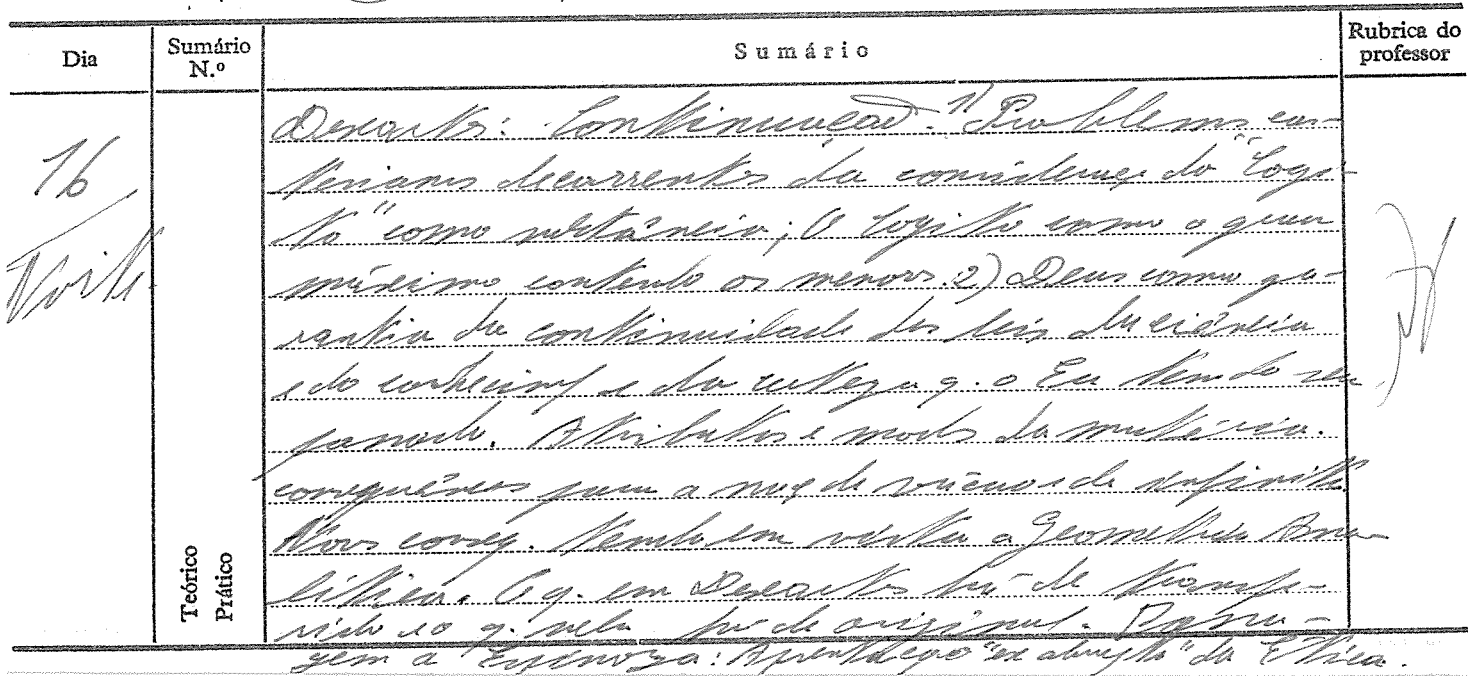 Dia
Sumário N.º
Sumário
Rubrica do professor
16
Noite
Teórico
Prático
Descartes: Continuação. 1) Problemas car-
tesianos decorrentes da do "Cogi-
to" como substância; O Cogito como o
máximo contendo os menores. 2) Deus como ga-
rantia da continuidade das leis da ciência
e do e da certeza q. o Eu tem do seu
passado. Atributos e modos da matéria.
para a de vácuo e de infinito
Novas conseq. tendo em vista a Geometria Ana-
lítica. O q. em Descartes há de transfe-
rido e o q. nele há de original. Passa-
gem a Espinoza: "ex abrupto" da Ética.